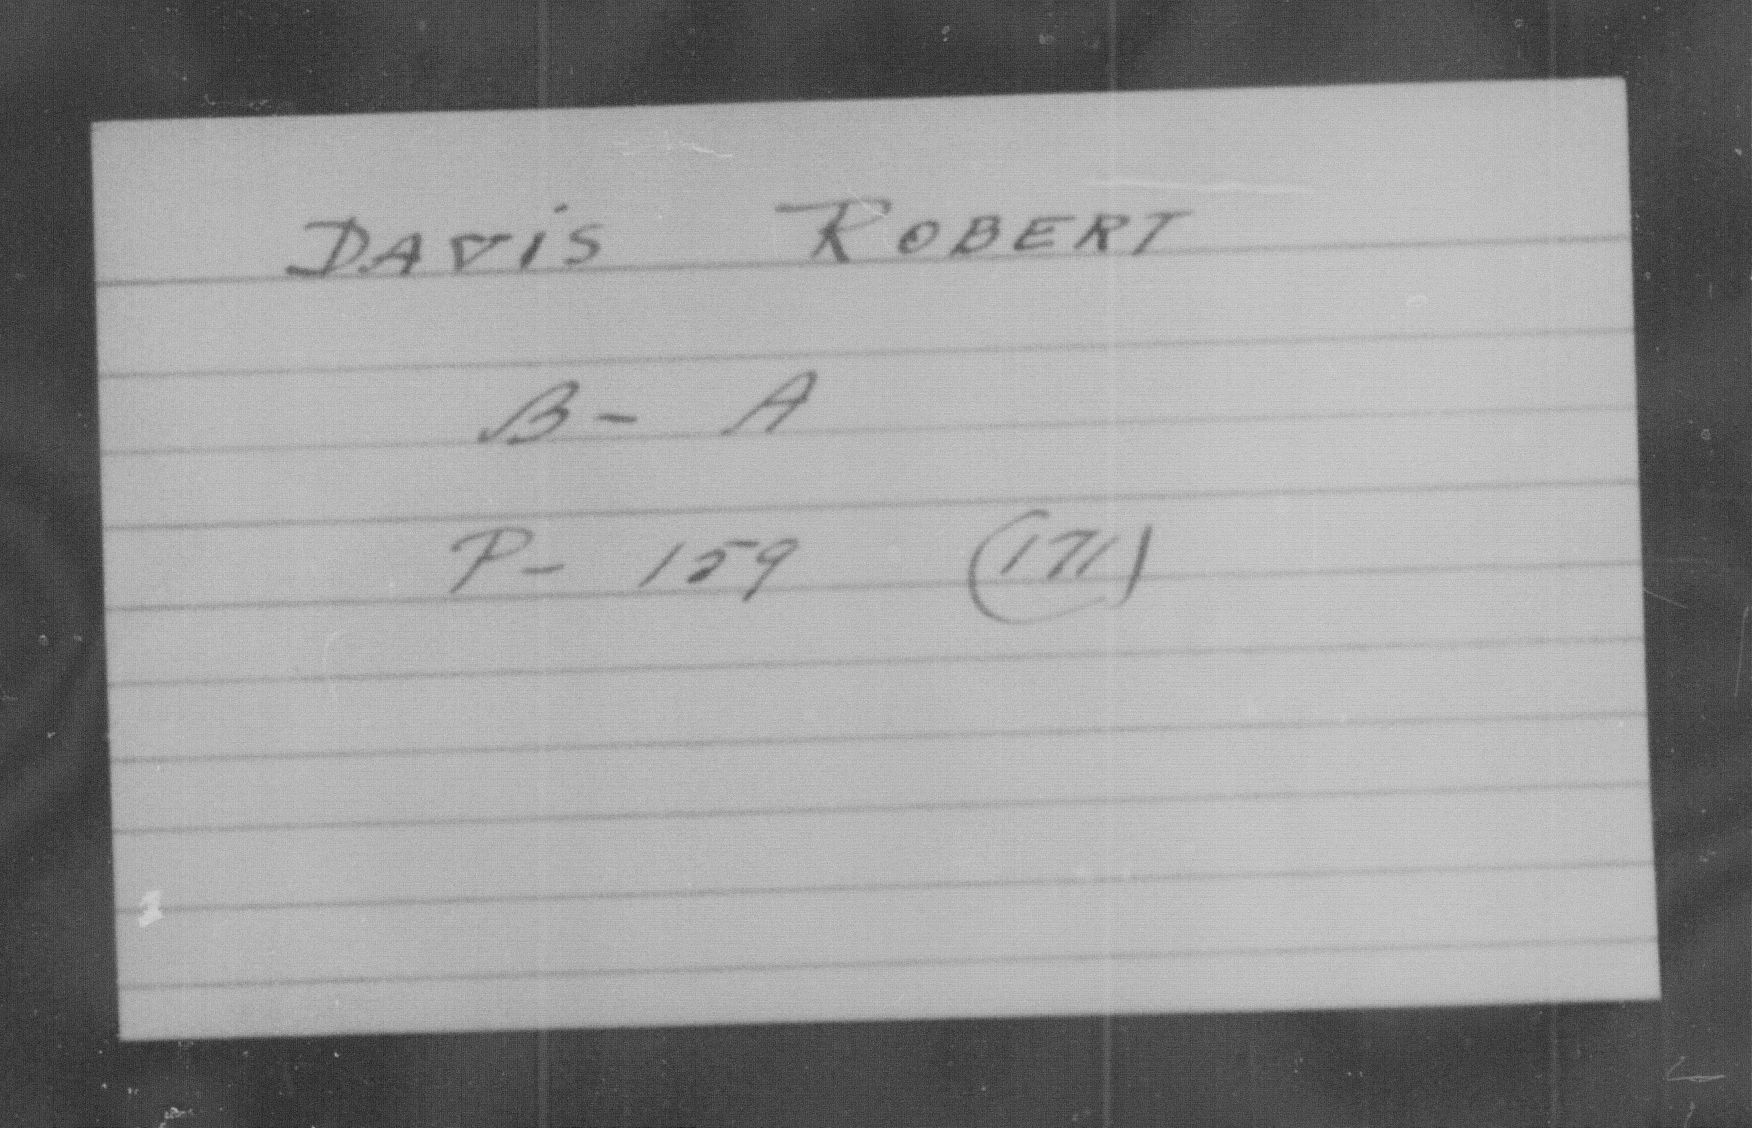 DAVIS ROBERT
B- A
P- 159 (171)